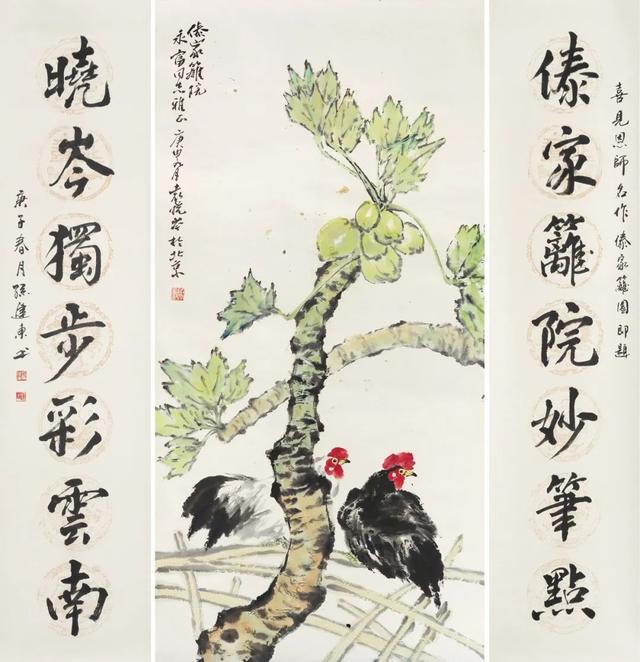 喜見恩師名作傣家籬園即題
傣家籬院妙筆點
傣家籬院
永富同志雅正 庚申九月袁晓岑於北京
曉岑獨步彩雲南
庚子春月孫建東书